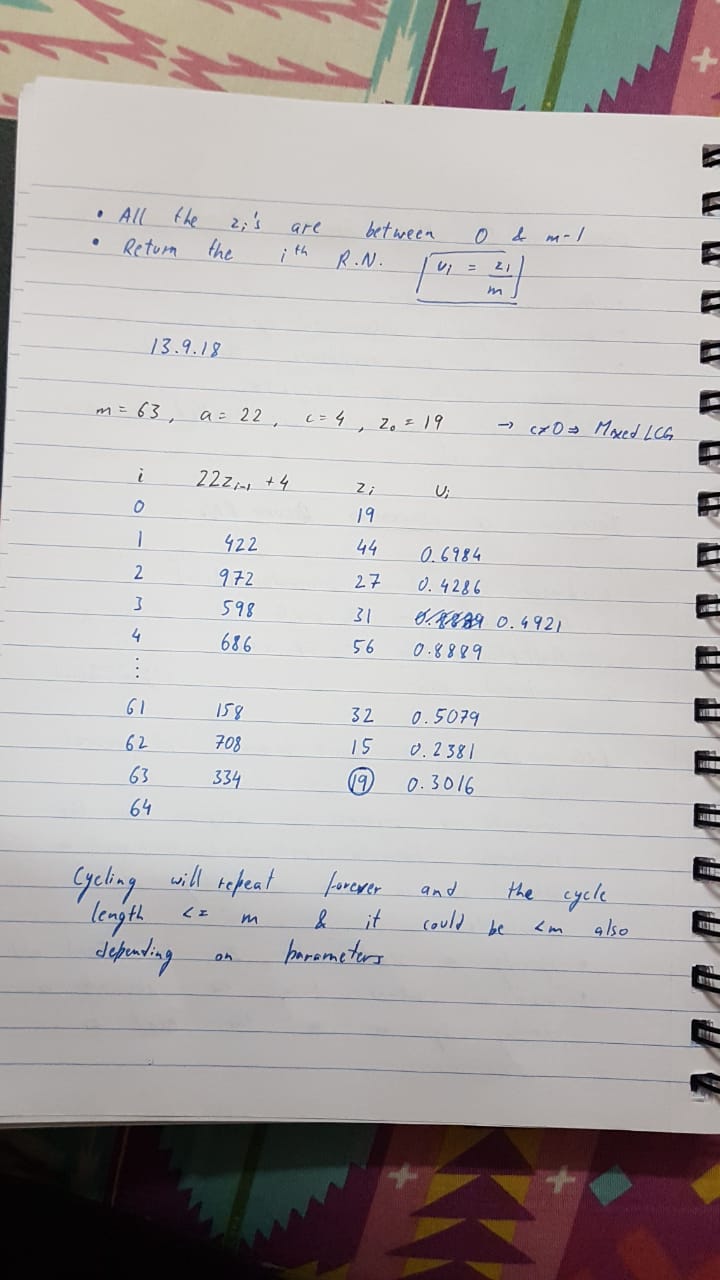 • All the zi's are between 0 & m-1
• Return the ith R.N. Ui = zi/m
13.9.18
m = 63, a = 22, c = 4, z0 = 19 → c≠0 ⇒ Mixed LCG
i 22zi-1 + 4 zi Ui
0 19
1 422 44 0.6984
2 972 27 0.4286
3 598 31 0.4921
4 686 56 0.8889
⋮
61 158 32 0.5079
62 708 15 0.2381
63 334 19 0.3016
64
Cycling will repeat forever and the cycle
length <= m & it could be <m also
depending on parameters